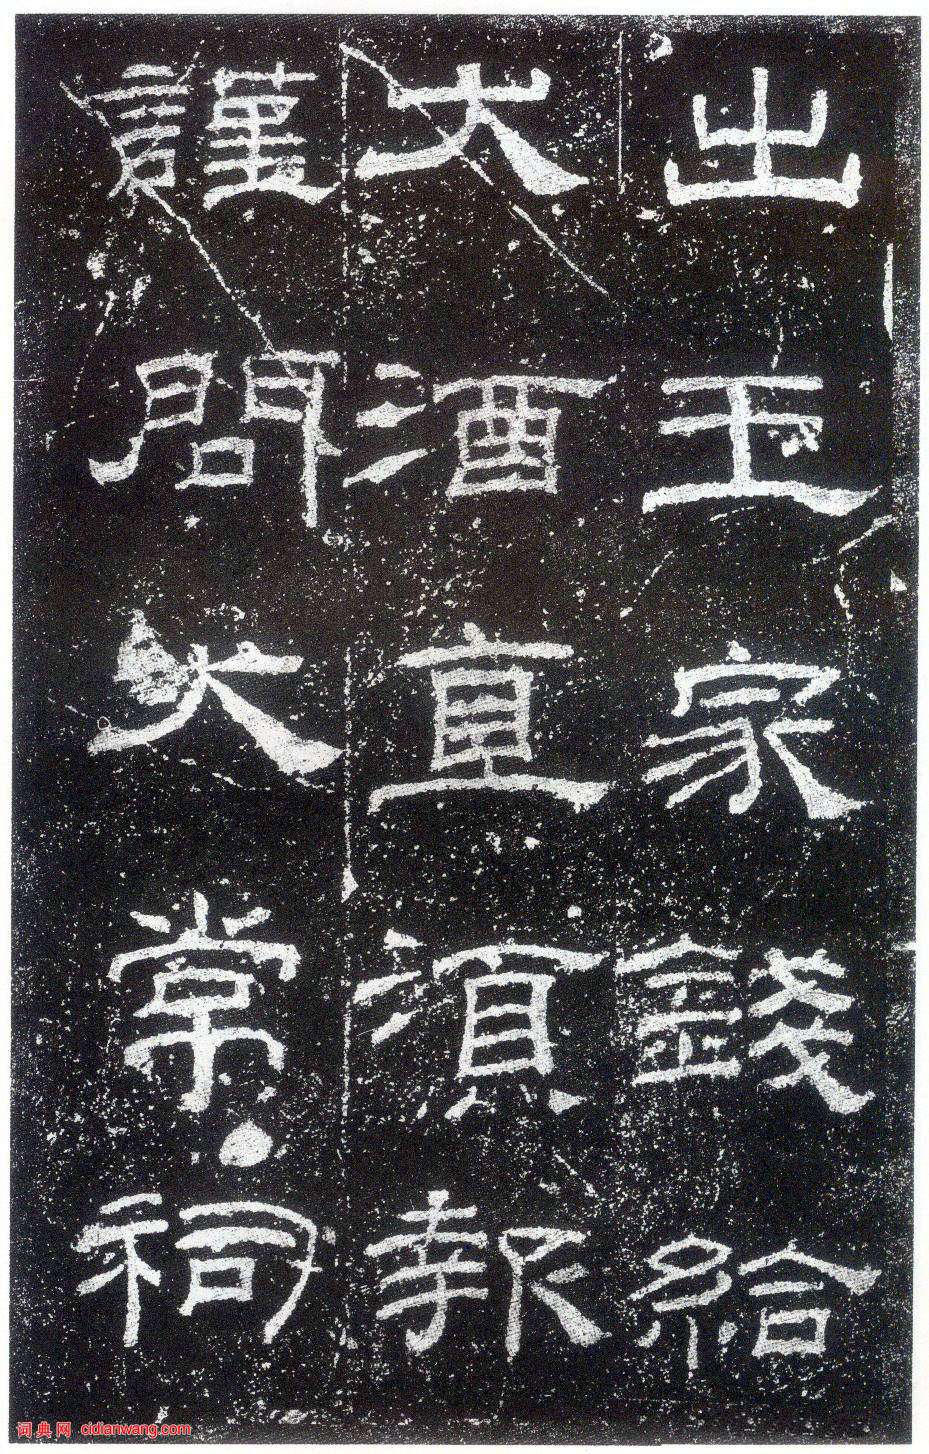 出王家錢給
大酒直須報
謹問大常祠
词典网 cidianwang.com